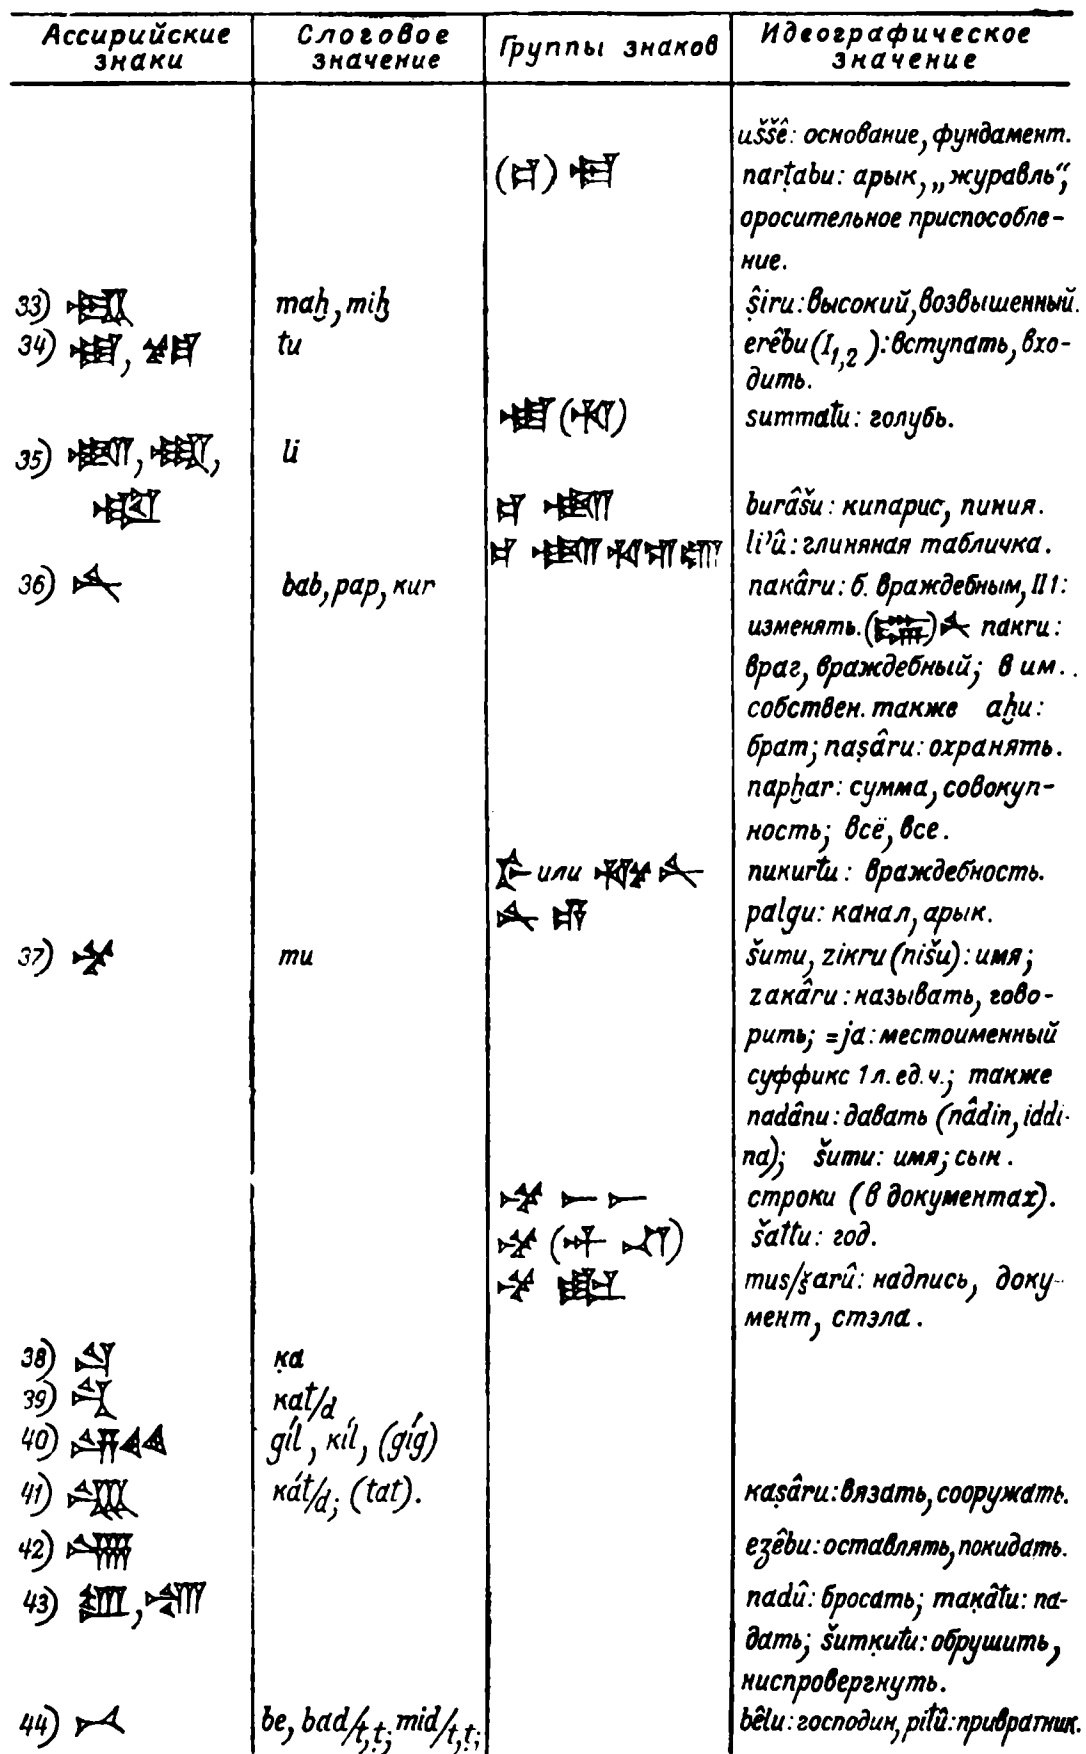 Ассирийские знаки
Слоговое значение
Группы знаков
Идеографическое значение
uššê: основание, фундамент.
( 𒄑 ) 𒀳 narṭabu: арык, „журавль“,
оросительное приспособле-
ние.
33) 𒈤 maḫ, miḫ ṣîru: высокий, возвышенный.
34) 𒌅, tu erêbu (I1,2): вступать, вхо-
дить.
summatu: голубь.
35) 𒇷, li
𒄑 𒇷 burâšu: кипарис, пиния.
li’û: глиняная табличка.
36) 𒉽 bab, pap, кur naкâru: б. враждебным, II 1:
изменять. naкru:
враг, враждебный; в им.
собствен. также aḫu:
брат; naṣâru: охранять.
napḫar: сумма, совокуп-
ность; всё, все.
или nuкurtu: враждебность.
palgu: канал, арык.
37) 𒈬 mu šumu, ziкru (nišu): имя;
zaкâru: называть, гово-
рить; =ja: местоименный
суффикс 1 л. ед. ч.; также
nadânu: давать (nâdin, iddi-
na); šumu: имя; сын.
строки (в документах).
šattu: год.
mus/šarû: надпись, доку-
мент, стэла.
38) 𒋡 ḳa
39) кat/d
40) gíl, кíl, (gíg)
41) кát/d; (tat). кaṣâru: вязать, сооружать.
42) ezêbu: оставлять, покидать.
43) nadû: бросать; maḳâtu: па-
дать; šumḳutu: обрушить,
ниспровергнуть.
44) 𒁁 be, bad/t,ṭ; mid/t,ṭ; bêlu: господин, pitû: привратник.